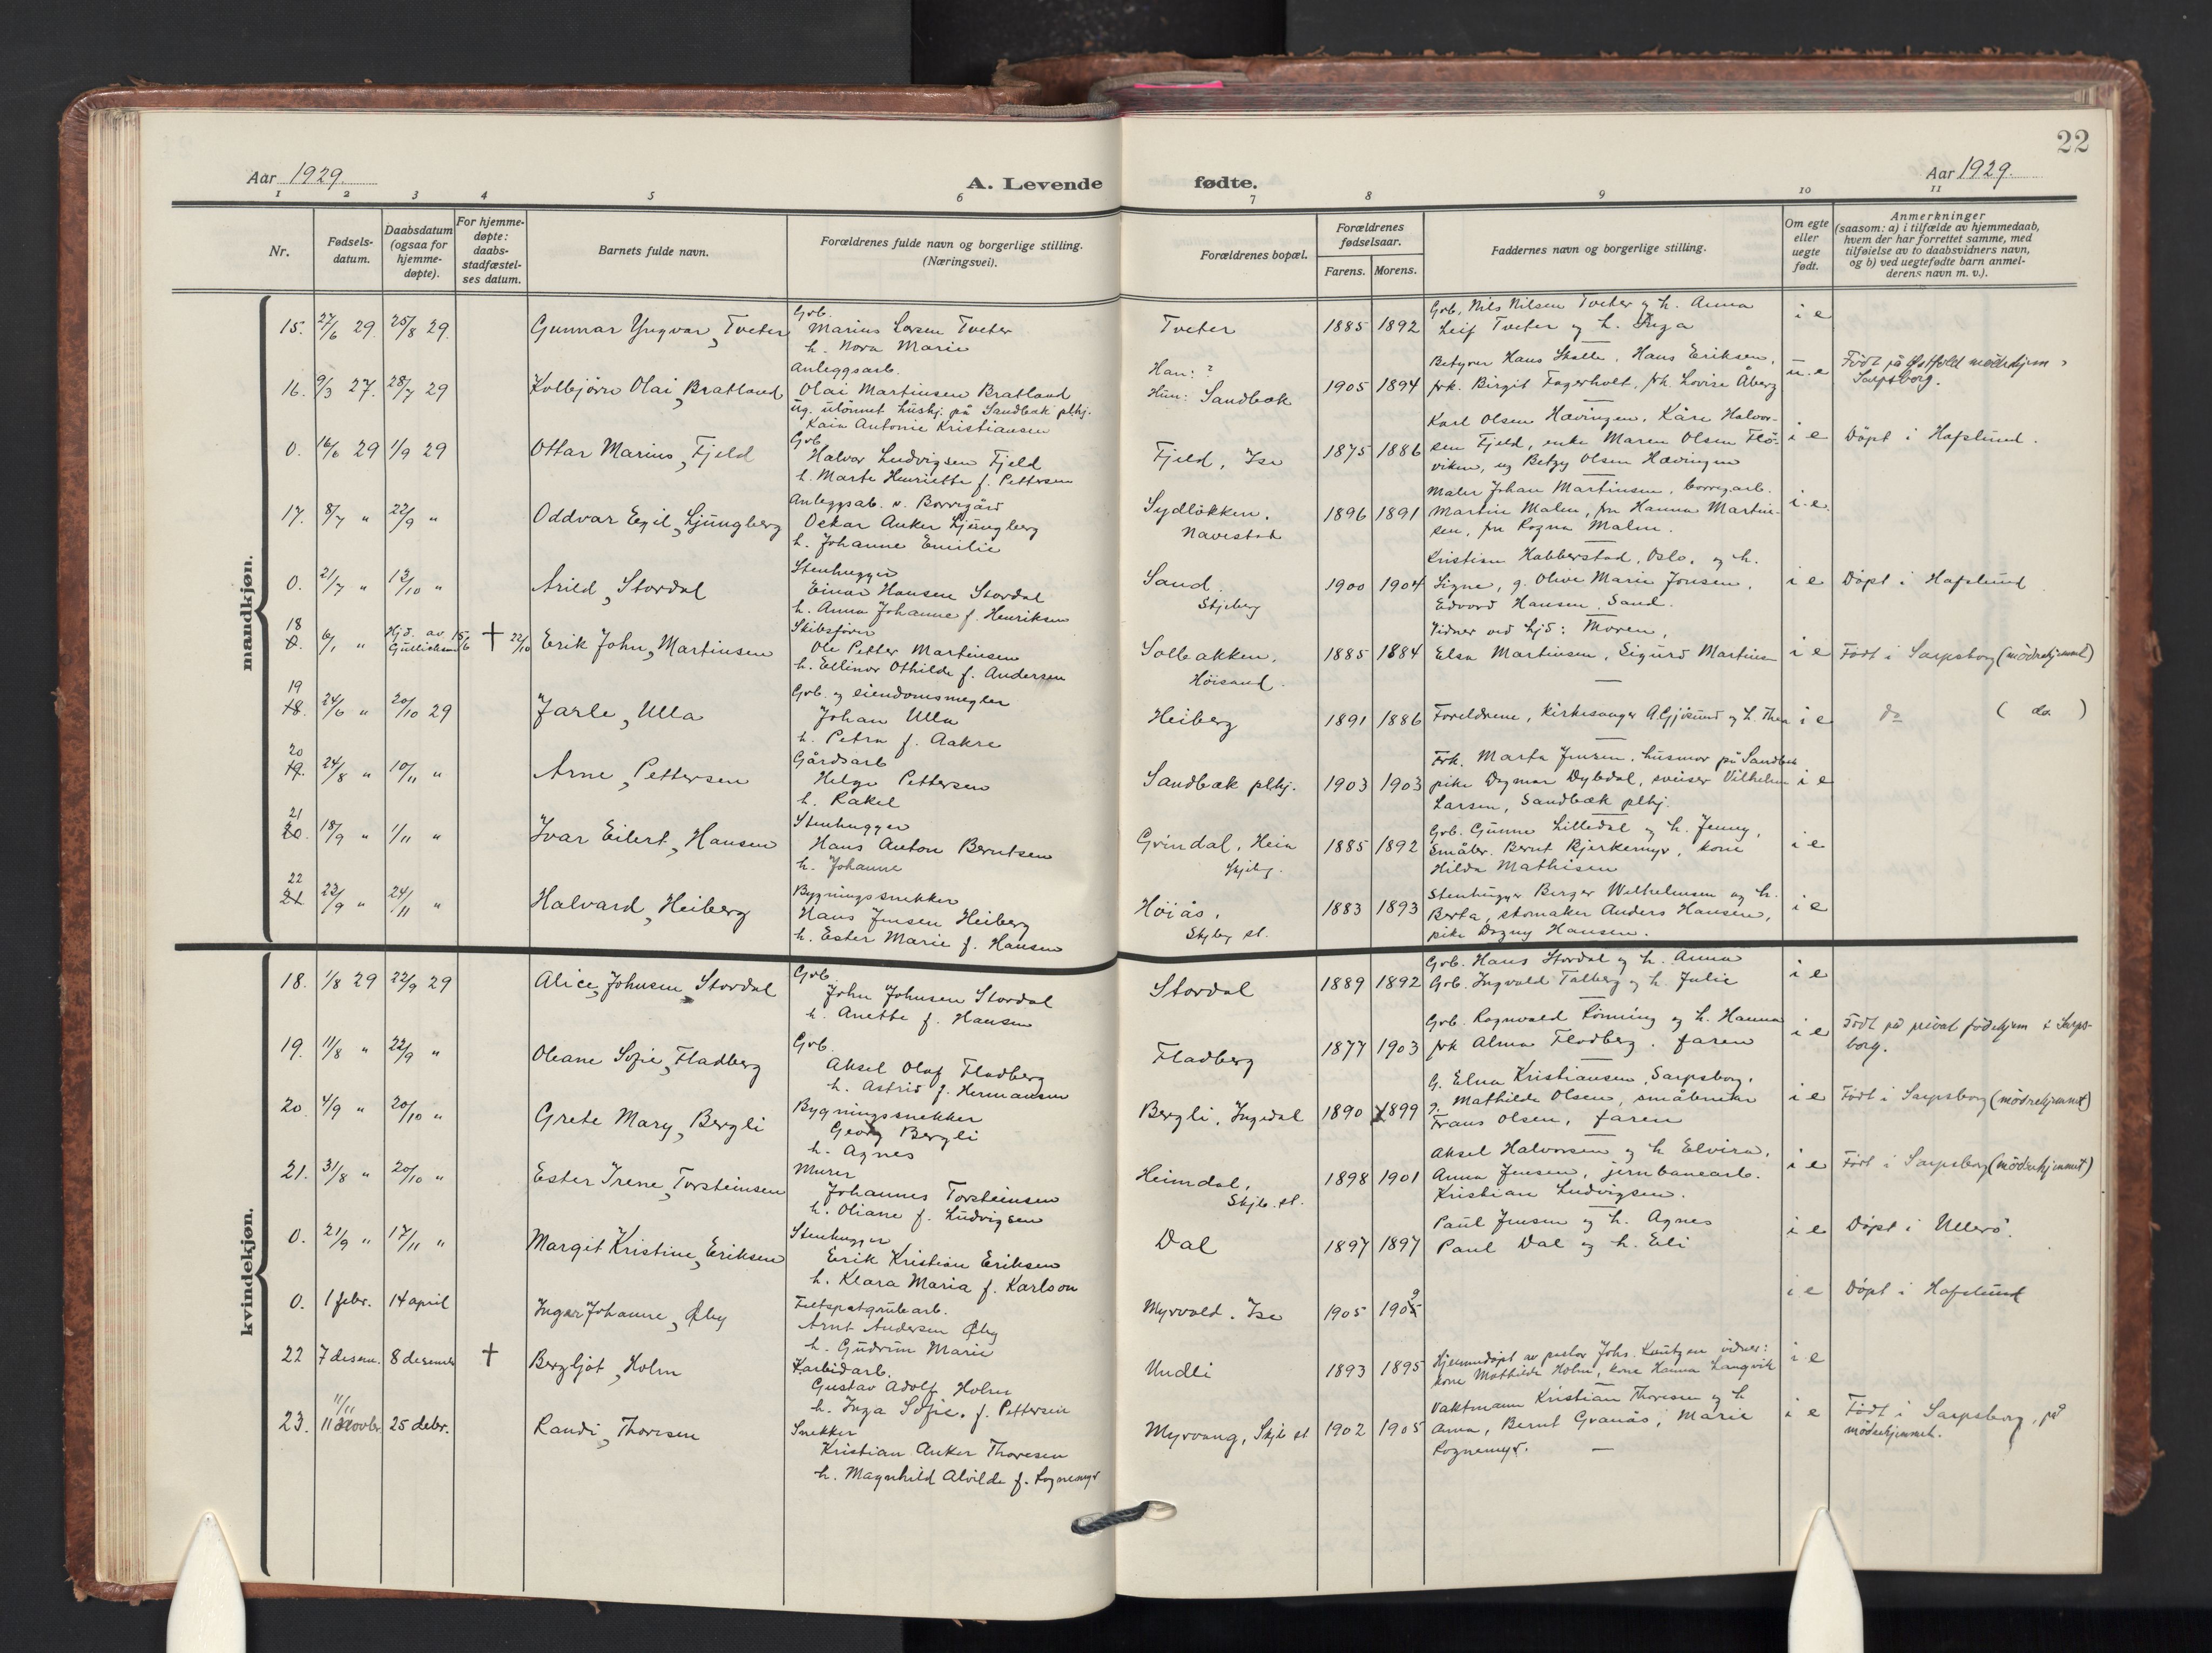 22
Aar 1929.
A. Levende fødte.
Aar 1929.
1 2 3 4 5 6 7 8 9 10 11
Nr.
Fødsels-
datum.
Daabsdatum
(ogsaa for
hjemme-
døpte).
For hjemme-
døpte:
daabs-
stadfæstel-
ses datum.
Barnets fulde navn.
Forældrenes fulde navn og borgerlige stilling.
(Næringsvei).
Forældrenes bopæl.
Forældrenes
fødselsaar.
Farens. Morens.
Faddernes navn og borgerlige stilling.
Om egte
eller
uegte
født.
Anmerkninger
(saasom: a) i tilfælde av hjemmedaab,
hvem der har forrettet samme, med
tilføielse av to daabsvidners navn,
og b) ved uegtefødte barn anmel-
derens navn m. v.).
mandkjøn.
15. 27/6 29. 25/8 29. Gunnar Yngvar, Tveter
Grb.
Marius Larsen Tveter
h. Nora Marie
Tveter 1885 1892
Grb. Nils Nilsen Tveter og h. Anna
Leif Tveter og h. Inga
i e
16. 9/3 27. 28/7 29 Kolbjørn Olai, Bratland
Anleggsarb.
Olai Martinsen Bratland
ug. ulönnet hushj. på Sandbæk plhj.
Kaia Antonie Kristiansen
Han: ?
Hun: Sandbæk
1905 1894
Bestyrer Hans Skatte, Hans Eriksen,
frk. Birgit Fagerholt, frk. Lovise Åberg
u. e
Født på Østfold mødrehjem,
Sarpsborg.
0. 16/6 29 1/9 29 Ottar Marius, Fjeld
Grb
Halvor Ludvigsen Fjeld
h. Marte Henriette f. Pettersen
Fjeld, Ise 1875 1886
Karl Olsen Hævingen, Kåre Halvor-
sen Fjeld, enke Maren Olsen Flö-
viken, ug Betzy Olsen Hævingen
i e Döpt i Hafslund.
17. 8/7 " 22/9 " Oddvar Egil, Ljungberg
Anleggsarb. v. Borregård
Oskar Anker Ljungberg
h. Johanne Emilie
Sydløkken,
Navestad
1896 1891
Maler Johan Martinsen, borreg.arb.
Martin Malm, fru Hanna Martin-
sen, fru Ragna Malm.
i. e.
0. 21/7 " 13/10 " Arild, Stordal
Stenhugger
Einar Hansen Stordal
h. Anna Johanne f. Henriksen
Sand.
Skjeberg
1900 1904
Kristian Habberstad, Oslo, og h.
Signe, g. Olive Marie Jonsen,
Edvard Hansen, Sand.
i e Döpt i Hafslund
18 6/1 " Hjd. av
Gulliksen 15/6 † 22/10 Erik John, Martinsen
Skibsfører
Ole Petter Martinsen
h. Ellinor Othilde f. Andersen
Solbakken,
Höisand.
1885 1884
Vidner ved hjd: Moren,
Elsa Martinsen, Sigurd Martinsen
i e Født i Sarpsborg (mödrehjemmet)
19
18. 24/6 " 20/10 29 Jarle, Ulla
Grb. og eiendomsmegler
Johan Ulla
h. Petra f. Aakre
Heiberg 1891 1886
Foreldrene, kirkesanger A. Gjøsund og h. Thea
i e do ( do. )
20
19. 24/8 " 10/11 " Arne, Pettersen
Gårdsarb
Helge Pettersen
h. Rakel
Sandbæk plhj. 1903 1903
Frk. Marta Jensen, husmor på Sandbæk
pike Dagmar Dybdal, sveiser Vilhelm
Larsen, Sandbæk plhj.
i e
21
20. 18/9 " 1/11 " Ivar Eilert, Hansen
Stenhugger
Hans Anton Berntsen
h. Johanne
Grindal, Hein
Skjebg.
1885 1892
Grb. Gunnar Lilledal og h. Jenny,
Småbr. Bernt Bjerkemyr, kone
Hilda Mathisen
i e
22
21 23/9 " 24/11 " Halvard, Heiberg
Bygningssnekker
Hans Jensen Heiberg
h. Ester Marie f. Hansen
Höiås,
Skjebg st.
1883 1893
Stenhugger Birger Wilhelmsen og h.
Berta, skomaker Anders Hansen,
pike Dagny Hansen.
i e
kvindekjøn.
18. 1/8 29 22/9 29 Alice, Johnsen Stordal
Grb.
John Johnsen Stordal
h. Anette f. Hansen
Stordal 1889 1892
Grb. Hans Stordal og h. Anna
Grb. Ingvald Talberg og h. Julie
i e
19. 11/8 " 22/9 " Oleane Sofie, Fladberg
Grb.
Aksel Olaf Fladberg
h. Astrid f. Hermansen
Fladberg 1877 1903
Grb. Ragnvald Rönning og h. Hanna
frk Alma Fladberg. faren
i e Født på privat födehjem i Sarps-
borg.
20. 4/9 " 20/10 " Grete Mary, Bergli
Bygningssnekker
Georg Bergli
h. Agnes
Bergli, Ingedal 1890 1899
G. Elna Kristiansen, Sarpsborg,
g. Mathilde Olsen, småbruker
Frans Olsen, faren
i e Født i Sarpsborg (mödrehjemmet)
21. 31/8 " 20/10 " Ester Irene, Torsteinsen
Murer
Johannes Torsteinsen
h. Oliane f. Ludvigsen
Heimdal,
Skjeb. st.
1898 1901
Aksel Halvorsen og h Elvira,
Anna Jensen, jernbanearb.
Kristian Ludvigsen.
i e Født i Sarpsborg (mödrehjemmet)
0. 21/9 " 17/11 " Margit Kristine, Eriksen
Stenhugger
Eirik Kristian Eriksen
h. Klara Maria f. Karlson
Dal 1897 1897
Paul Jensen og h. Agnes
Paul Dal og h. Eli
i e Döpt i Ullerö.
0. 1 febr. 14 april Inger Johanne, Øby
Feltspatgrubearb.
Arnt Andersen Øby
h. Gudrun Marie
Myrvold. Ise 1905 1909
i e Döpt i Hafslund
22 7 desem. 8 desember † Bergljot, Holm
Karbidarb.
Gustav Adolf Holm
h. Inga Sofie. f. Pettersen
Undli 1893 1895
Hjemmedöpt av pastor Johs. Knutzen vidner:
kone Mathilde Holm, kone Hanna Langvik
i e
11/11
23. 11 novbr. 25 debr. Randi, Thoresen
Snekker
Kristian Anker Thoresen
h. Magnhild Alvilde f. Rognemyr
Myrvang, Skjeb st 1902 1905
Vaktmann Kristian Thoresen og h
Anna, Bernt Granås, Marie
Rognemyr.
i e Født i Sarpsborg, på
mödrehjemmet.